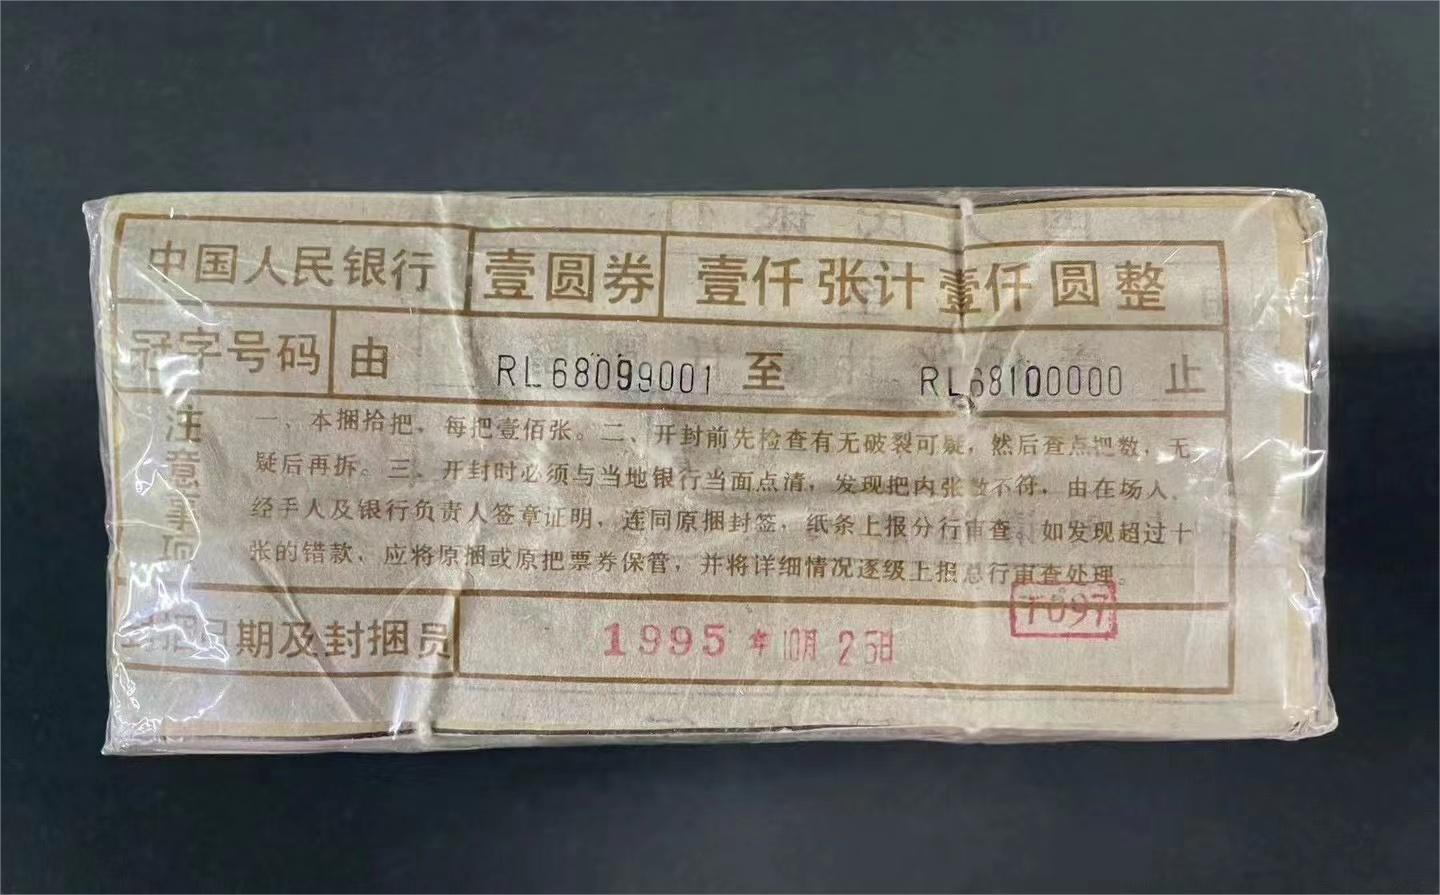 中国人民银行 壹圆券 壹仟张计壹仟圆整
冠字号码 由 RL68099001 至 RL68100000 止
注意事项
一、本捆拾把，每把壹佰张。二、开封前先检查有无破裂可疑，然后查点把数，无
疑后再拆。三、开封时必须与当地银行当面点清，发现把内张数不符，由在场人、
经手人及银行负责人签章证明，连同原捆封签，纸条上报分行审查。如发现超过十
张的错款，应将原捆或原把票券保管，并将详细情况逐级上报总行审查处理。
封捆日期及封捆员 1995年10月25日
T097